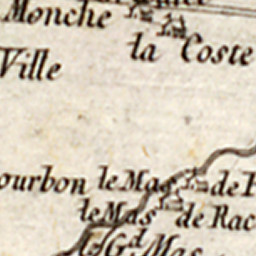 Monche
la Coste
Ville
ourbon le Mas de
le Mas de Rac
le Gd Mas